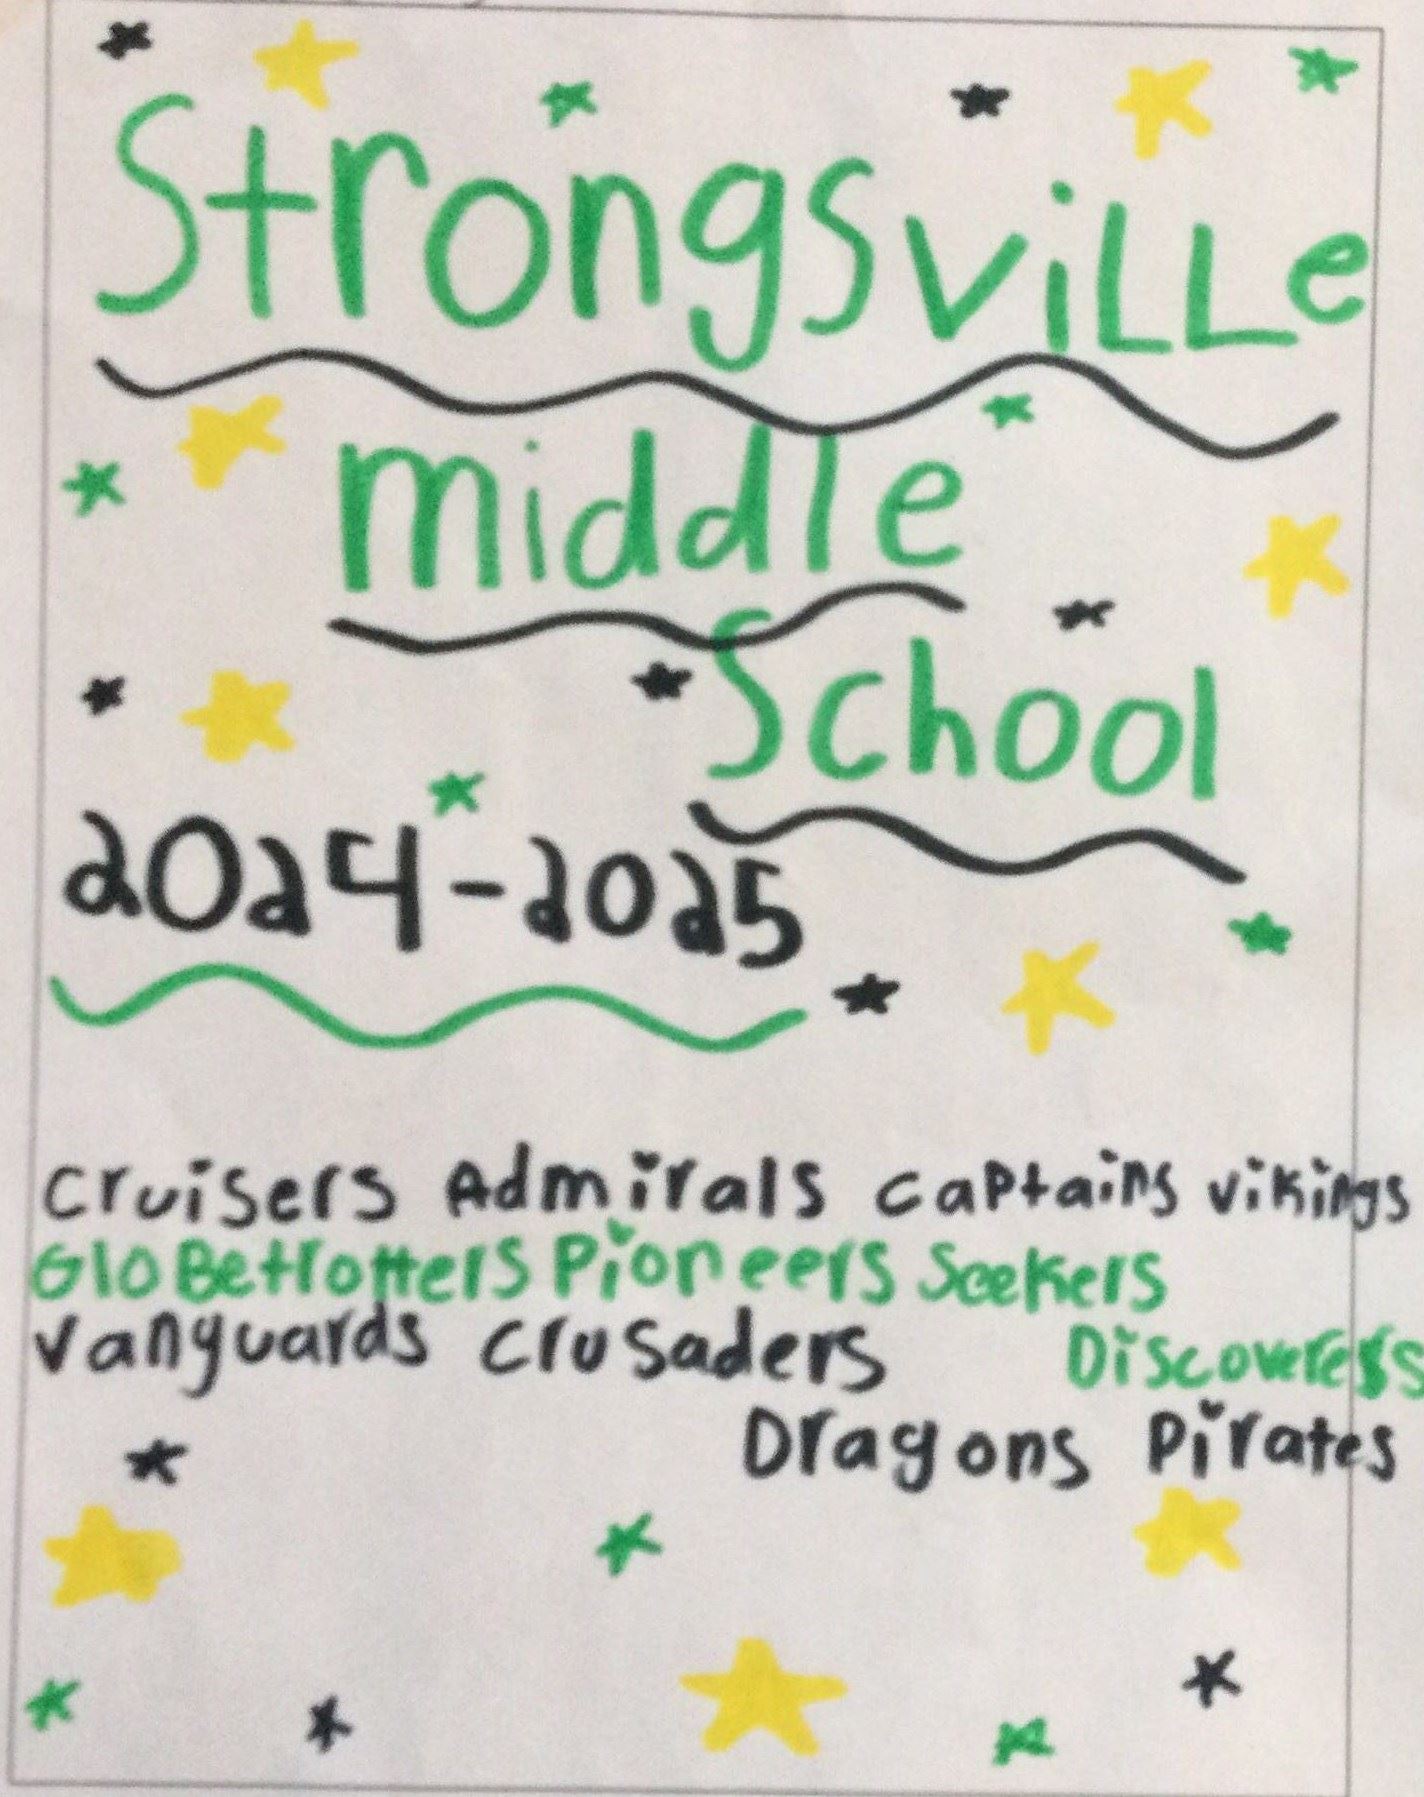 StrongsviLLe
middle
School
2024-2025
cruisers Admirals captains vikings
GloBetrotters Pioneers Seekers
vanguards crusaders Discoverers
Dragons Pirates